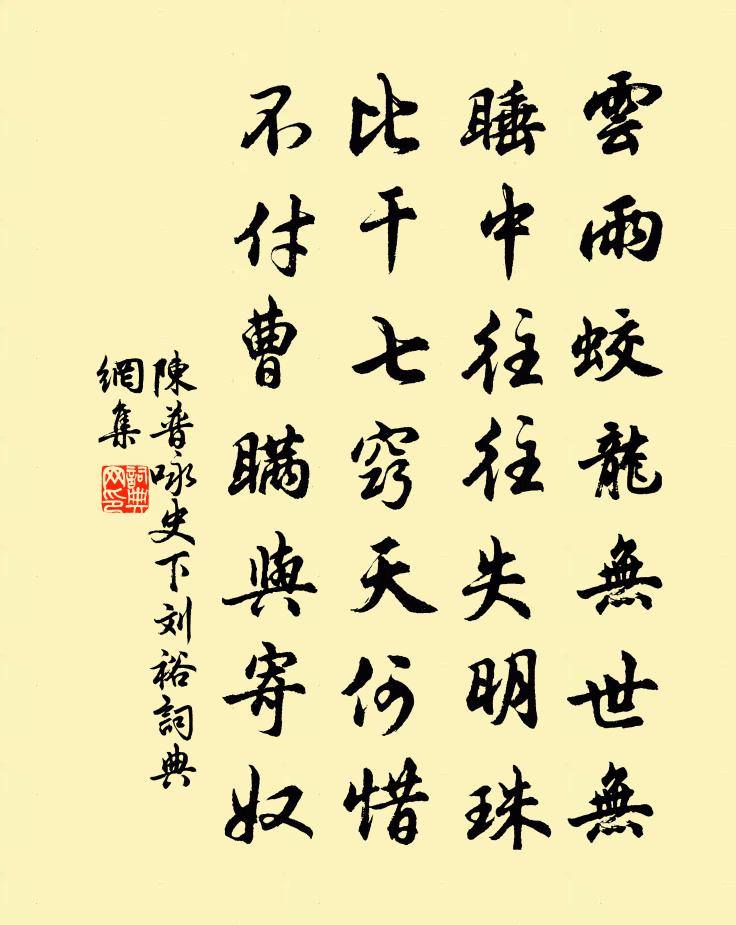 雲雨蛟龍無世無
睡中往往失明珠
比干七竅天何惜
不付曹瞞與寄奴
陳普咏史下刘裕詞典
網集
詞典網印